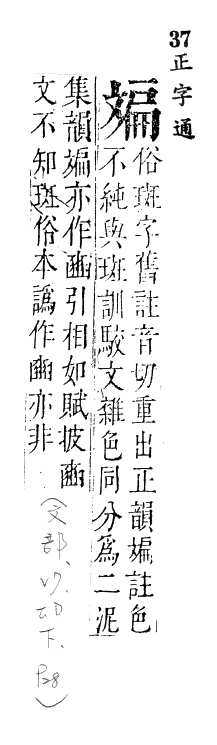 37正字通
斒
俗斑字舊註音切重出正韻斒註色
不純與斑訓駁文雜色同分爲二泥
集韻斒亦作豳引相如賦披豳
文不知斑俗本譌作豳亦非
(文部、下、P28)